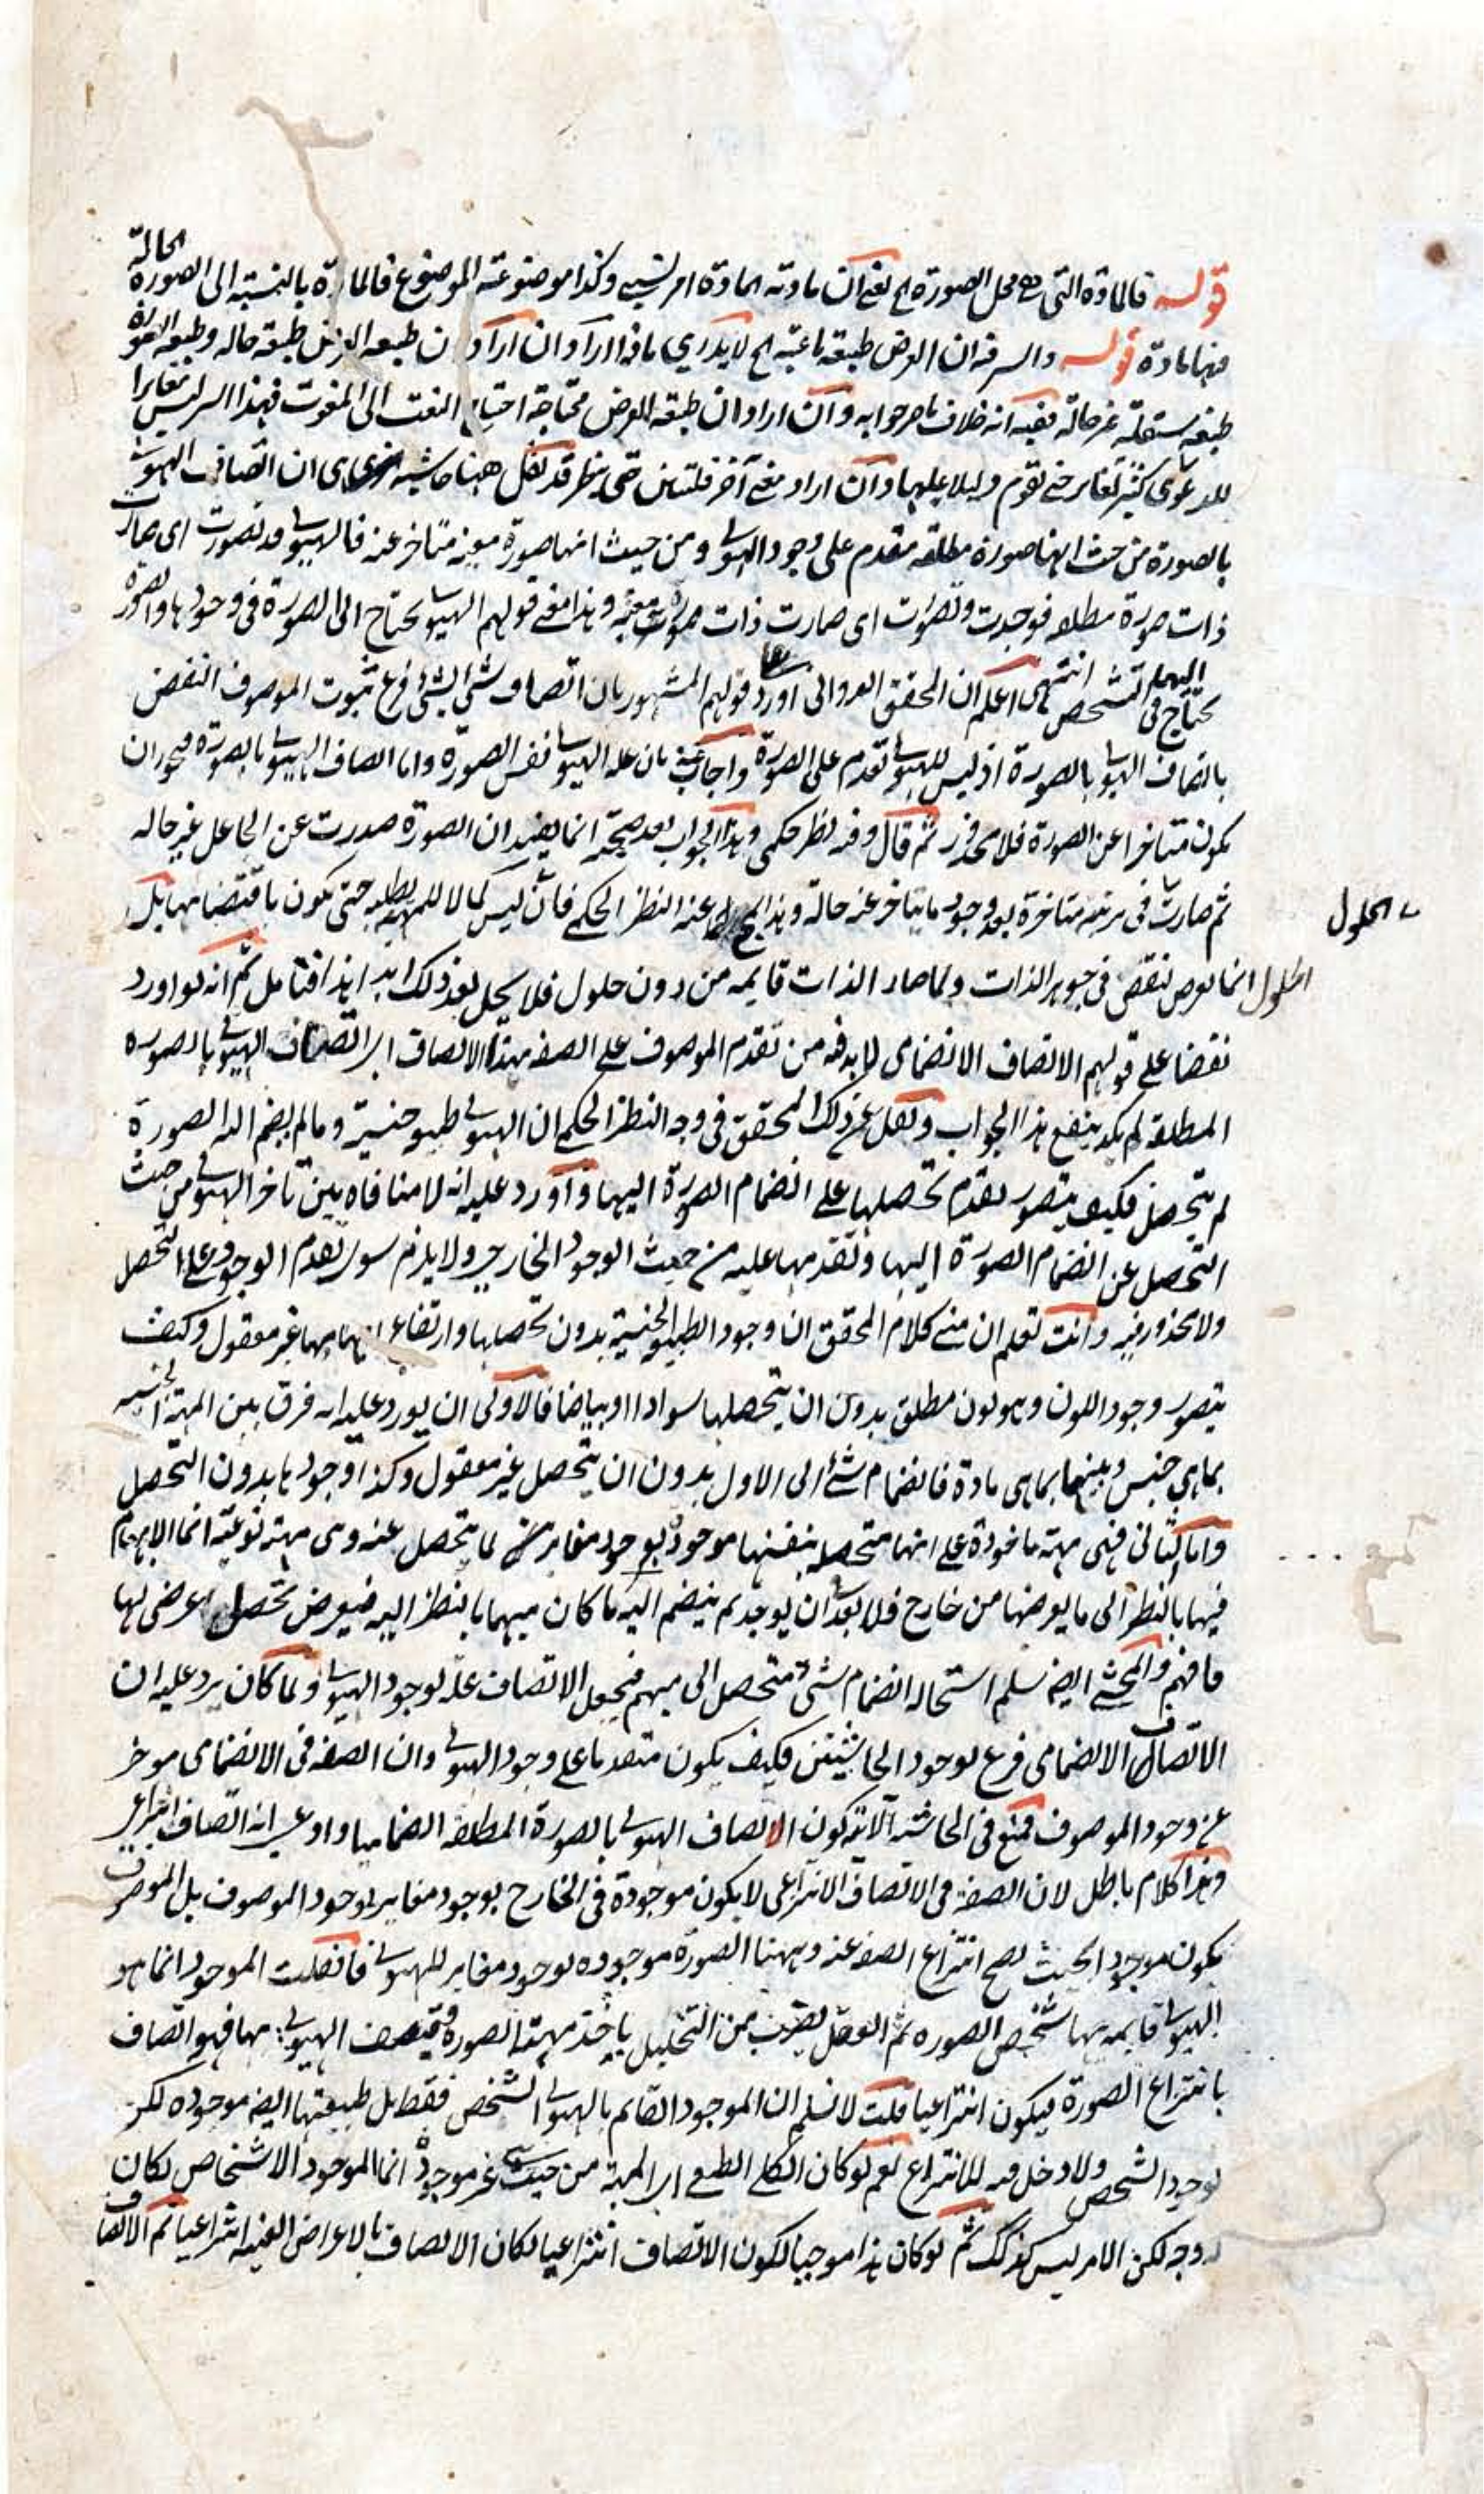 قوله فالمادة التى هى محل الصورة الخ يعنى ان مادته المادة امر نسبي وكذا موضوعية الموضوع فالمادة بالنسبة الى الصورة الحالة
فيها مادة قوله والسر فيه ان العرض طبيعة ناعتية الخ لا يدرى ماذا اراد ان اراد ان طبيعة العرض طبيعة حالة وطبيعة الصورة
طبيعة مستقلة غير حالة ففيه انه خلاف ما مر جوابه وان اراد ان طبيعة العرض محتاجة احتياج النعت الى المنعوت فهذا السر ليس مغايرا
للدعوى كثير تغاير حتى تقوم دليلا عليها وان اراد معنى آخر فلتبين حتى ينظر قد نقل ههنا حاشية اخرى هى ان اتصاف الهيولى
بالصورة من حيث انها صورة مطلقة مقدم على وجود الهيولى ومن حيث انها صورة معينة متاخر عنه فالهيولى قد تصورت اى صارت
ذات صورة مطلقة فوجدت وتصورت اى صارت ذات صورة معينة وهذا معنى قولهم الهيولى يحتاج الى الصورة فى وجودها والصورة
يحتاج فى التشخص اليها انتهى اعلم ان المحقق الدوانى اورد على قولهم المشهور بان اتصاف شئ بالشئ فرع ثبوت الموصوف النقض
باتصاف الهيولى بالصورة اذ ليس للهيولى تقدم على الصورة واجاب عنه بان علة الهيولى نفس الصورة واما اتصاف الهيولى بالصورة فيجوز ان
يكون متاخرا عن الصورة فلا محذور ثم قال وفيه نظر حكمى وهذا الجواب بعد صحته انما يفيد ان الصورة صدرت عن الجاعل غير حالة
ثم صارت فى مرتبة متاخرة بعد وجود ما يتاخر عنه حالة وهذا مما عنه النظر الحكمى فانه ليس كمالا للمهية حتى يكون باقتضائها بل
الحلول
الحلول انما يعرض لنقص فى جوهر الذات ولما صار الذات قايمة من دون حلول فلا يحل بعد ذلك ابدا هذا فتامل ثم انه لو اورد
نقضا على قولهم الاتصاف الانضمامى لا بد فيه من تقدم الموصوف على الصفة بهذا الاتصاف اى اتصاف الهيولى بالصورة
المطلقة لم يكد ينفع هذا الجواب ونقل عن ذلك المحقق فى وجه النظر الحكمى ان الهيولى طبيعة جنسية وما لم ينضم اليه الصورة
لم يتحصل فكيف يتصور تقدم تحصلها على انضمام الصورة اليها واورد عليه انه لا منافاة بين تاخر الهيولى من حيث
التحصل عن انضمام الصورة اليها وتقدمها عليه من حيث الوجود الخارجى ولا يلزم سوى تقدم الوجود على التحصل
ولا محذور فيه وانت تعلم ان مبنى كلام المحقق ان وجود الطبيعة الجنسية بدون تحصلها وارتفاع ابهامها غير معقول وكيف
يتصور وجود اللون وهو لون مطلق بدون ان يتحصلها سوادا او بياضا فالاولى ان يورد عليه انه فرق بين المهية الجنسية
بما هى جنس وبينها بما هى مادة فانضمام شئ الى الاول بدون ان يتحصل غير معقول وكذا وجودها بدون التحصل
واما الثانى فهى مهية ماخوذة على انها متحصلة بنفسها موجودة بوجود مغاير لما يتحصل عنه وهى مهية نوعية انما الابهام
فيها بالنظر الى ما يعرضها من خارج فلا بعد ان يوجد ثم ينضم اليه ما كان مبهما بالنظر اليه فيعرض تحصل عرضى لها
فافهم والمحشى ايضا سلم استحالة انضمام شئ متحصل الى مبهم فيجعل الاتصاف علة لوجود الهيولى ولما كان يرد عليه ان
الاتصاف الانضمامى فرع لوجود الحاشيتين فكيف يكون متقدما على وجود الهيولى وان الصفة فى الانضمامى موخر
عن وجود الموصوف فمنع فى الحاشية الآتية كون الاتصاف الهيولى بالصورة المطلقة انضماميا وادعى انه اتصاف انتزاعى
وهذا كلام باطل لان الصفة فى الاتصاف الانتزاعى لا يكون موجودة فى الخارج بوجود مغاير لوجود الموصوف بل الموصوف
يكون موجودا بحيث يصح انتزاع الصفة عنه وههنا الصورة موجودة بوجود مغاير للهيولى فان قلت الموجود انما هو
الهيولى قايمة بها شخص الصورة ثم العقل بضرب من التحليل ياخذ مهية الصورة فيتصف الهيولى بها فهو اتصاف
بانتزاع الصورة فيكون انتزاعيا قلت لا نسلم ان الموجود القايم بالهيولى الشخص فقط بل طبيعتها ايضا موجودة لكن
بوجود الشخص ولا دخل فيه للانتزاع نعم لو كان الكلى الطبعى اى المهية من حيث هى غير موجودة انما الموجود الاشخاص لكان
له وجه لكن الامر ليس كذلك ثم لو كان هذا موجبا لكون الاتصاف انتزاعيا لكان الاتصاف بالاعراض العينية انتزاعيا ثم الاتصاف